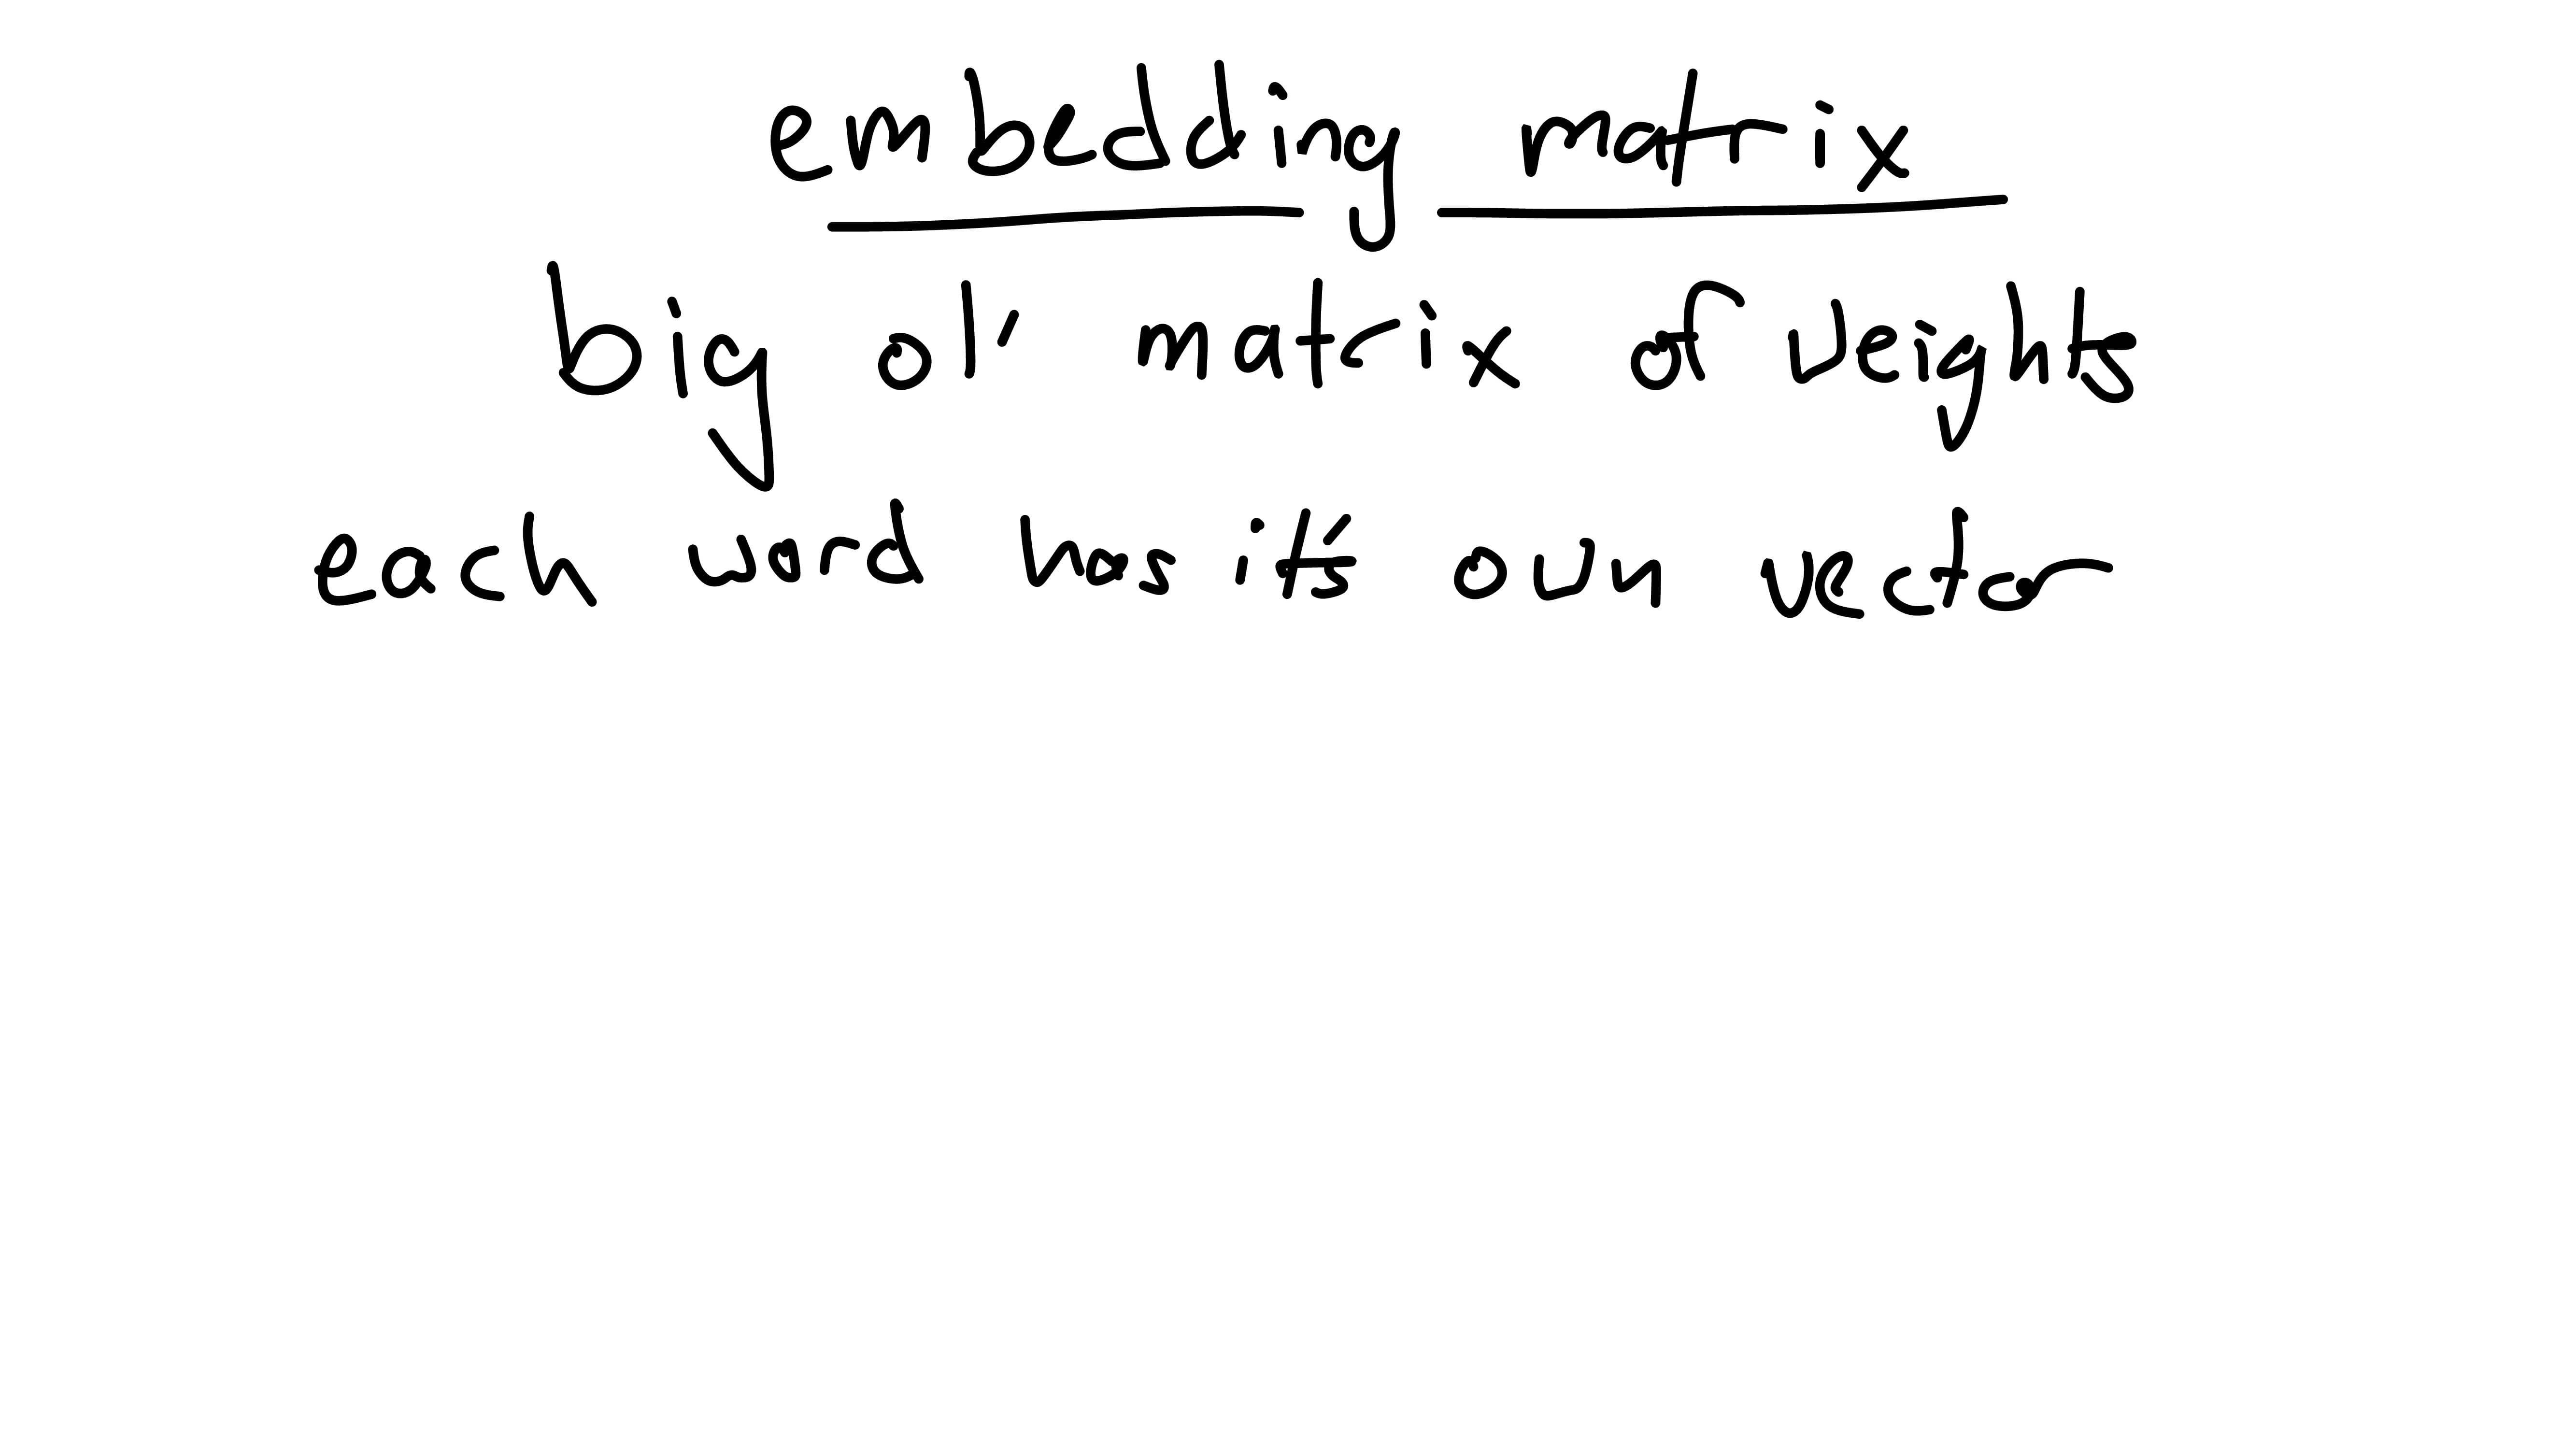 embedding matrix
big ol' matrix of weights
each word has it's own vector